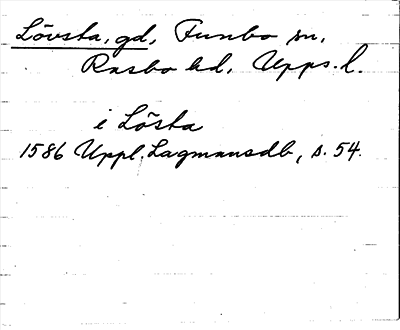 Lövsta, gd, Funbo sn,
Rasbo hd, Upps. l.
i Lösta
1586 Uppl. Lagmansdb, s. 54.